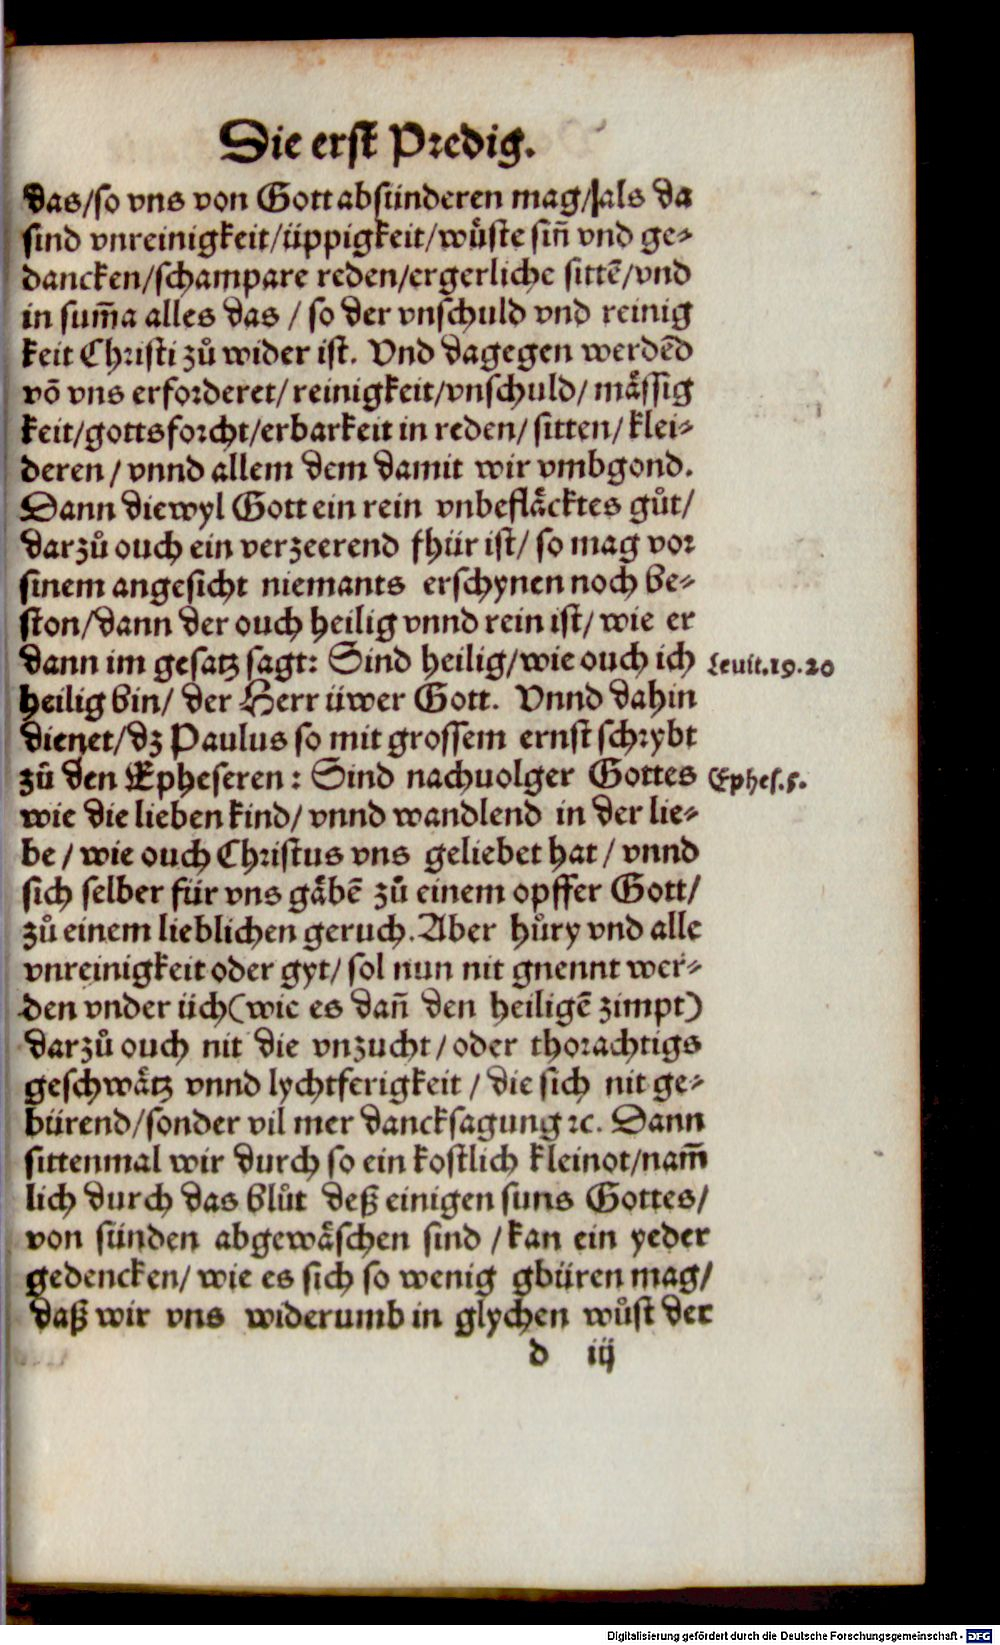 Die erst Predig.
das/so vns von Gott absünderen mag/als da
sind vnreinigkeit/üppigkeit/wuͤste siñ vnd ge⸗
dancken/schampare reden/ergerliche sittē/vnd
in sum̄a alles das / so der vnschuld vnd reinig
keit Christi zuͦ wider ist. Vnd dagegen werdēd
vō vns erforderet/ reinigkeit/vnschuld/ maͤssig
keit/gottsforcht/erbarkeit in reden/ sitten/ klei⸗
deren / vnnd allem dem damit wir vmbgond.
Dann diewyl Gott ein rein vnbeflaͤcktes guͦt/
darzuͦ ouch ein verzeerend fhür ist/ so mag vor
sinem angesicht niemants erschynen noch be⸗
ston/dann der ouch heilig vnnd rein ist/ wie er
dann im gesatz sagt: Sind heilig/wie ouch ich
Leuit.19.20
heilig bin/ der Herr üwer Gott. Vnnd dahin
dienet/dz Paulus so mit grossem ernst schrybt
zuͦ den Epheseren: Sind nachuolger Gottes
Ephes.5.
wie die lieben kind/ vnnd wandlend in der lie⸗
be / wie ouch Christus vns geliebet hat / vnnd
sich selber für vns gaͤbē zuͦ einem opffer Gott/
zuͦ einem lieblichen geruch. Aber huͦry vnd alle
vnreinigkeit oder gyt/ sol nun nit gnennt wer⸗
den vnder üch(wie es dañ den heiligē zimpt)
darzuͦ ouch nit die vnzucht/ oder thorachtigs
geschwaͤtz vnnd lychtferigkeit / die sich nit ge⸗
bürend/sonder vil mer dancksagung ⁊c. Dann
sittenmal wir durch so ein kostlich kleinot/nam̄
lich durch das bluͦt deß einigen suns Gottes/
von sünden abgewaͤschen sind /kan ein yeder
gedencken/ wie es sich so wenig gbüren mag/
daß wir vns widerumb in glychen wuͦst der
d iij
Digitalisierung gefördert durch die Deutsche Forschungsgemeinschaft - DFG